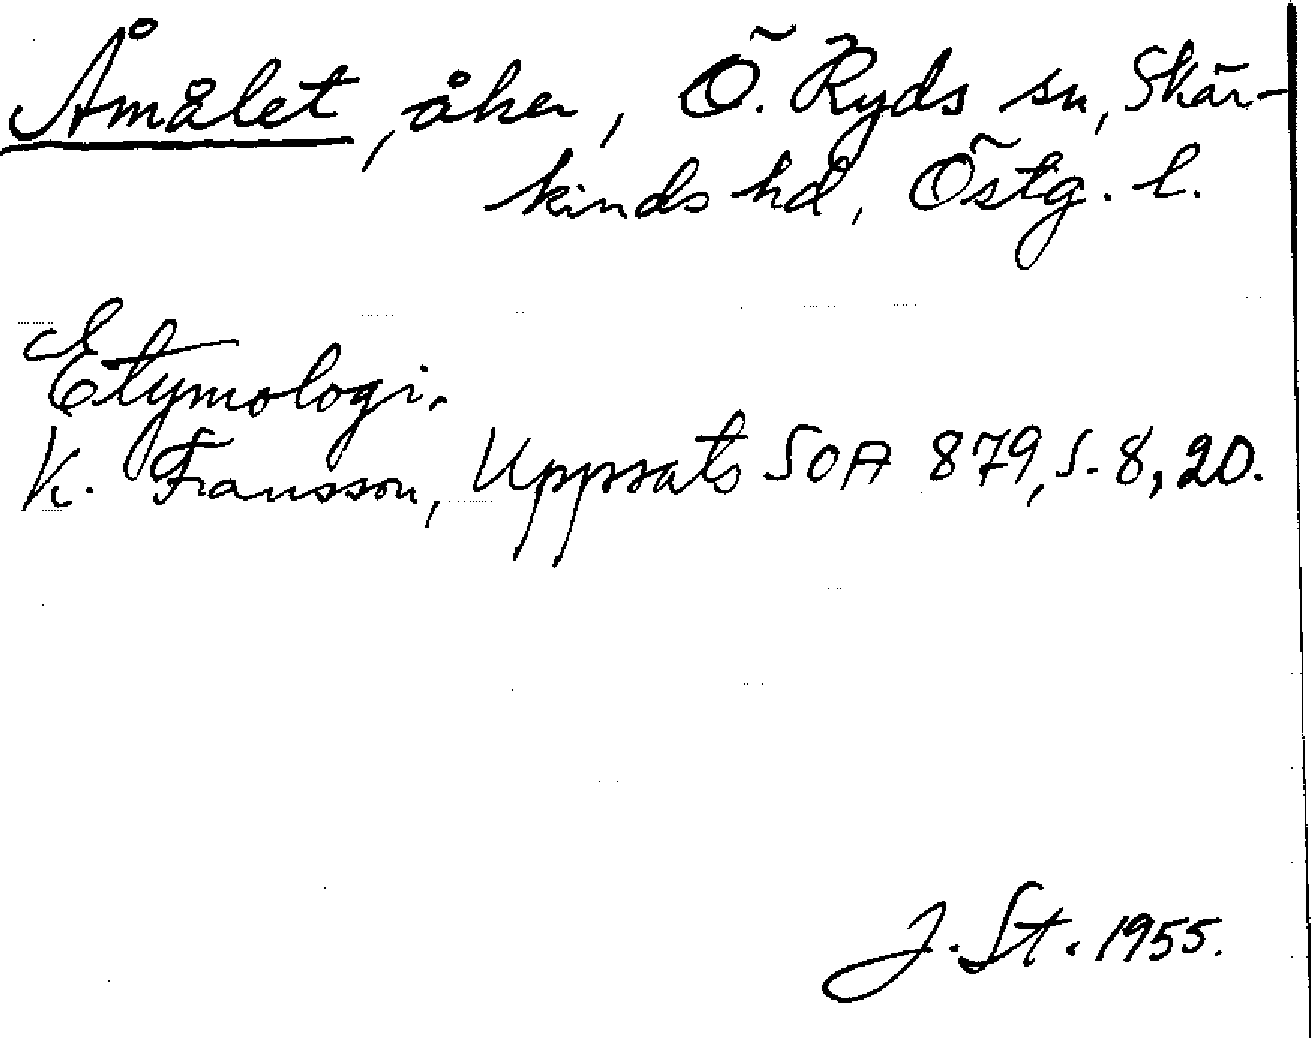 Åmålet, åker, Ö. Ryds sn, Skär-
kinds hd, Östg. l.
Etymologi.
K. Fransson, Uppsats SOA 879, s. 8, 20.
J. St. 1955.